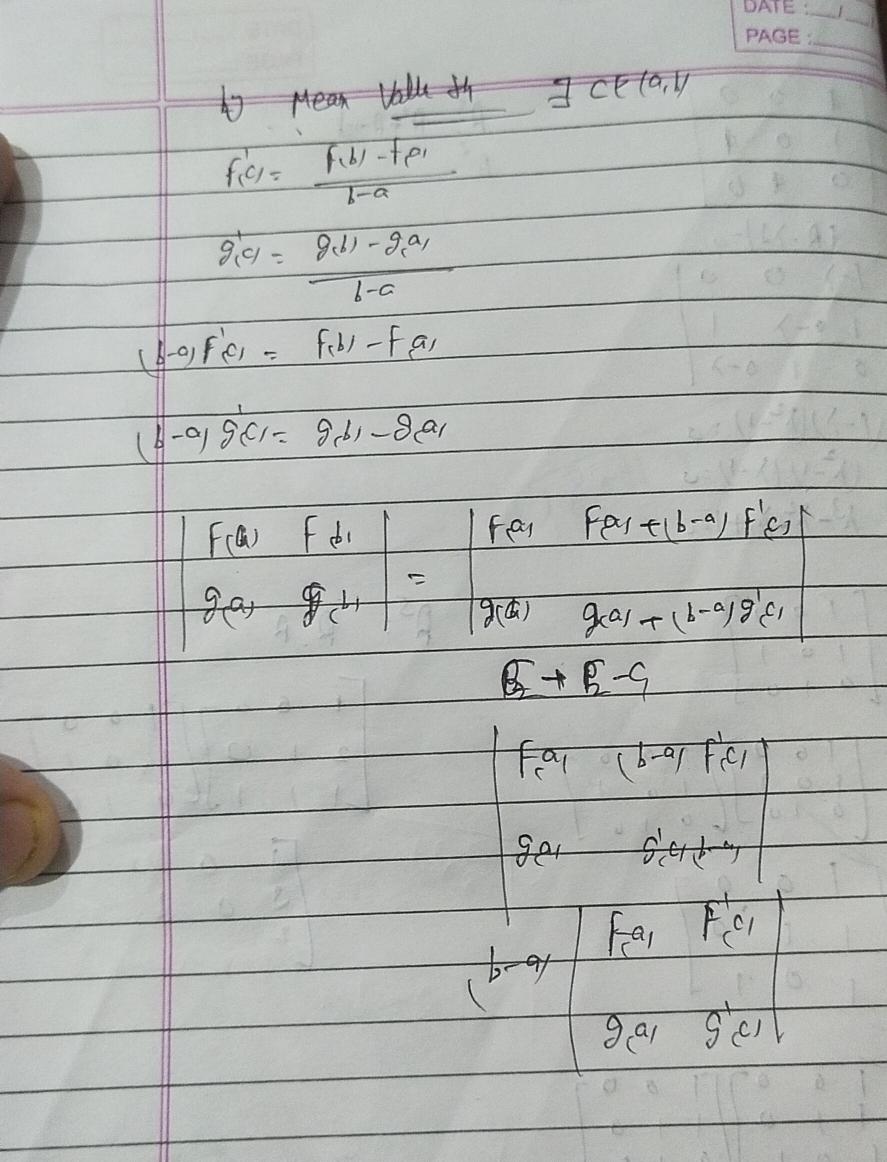 DATE :
PAGE :
b) Mean Value th ∃ c ∈ (a,b)
f'(c) = f(b) - f(a) / b-a
g'(c) = g(b) - g(a) / b-a
(b-a) f'(c) = f(b) - f(a)
(b-a) g'(c) = g(b) - g(a)
| f(a) f(b) | = | f(a) f(a) + (b-a) f'(c) |
| g(a) g(b) | | g(a) g(a) + (b-a) g'(c) |
| f(a) (b-a) f'(c) |
| g(a) g'(c) (b-a) |
(b-a) | f(a) f'(c) |
| g(a) g'(c) |